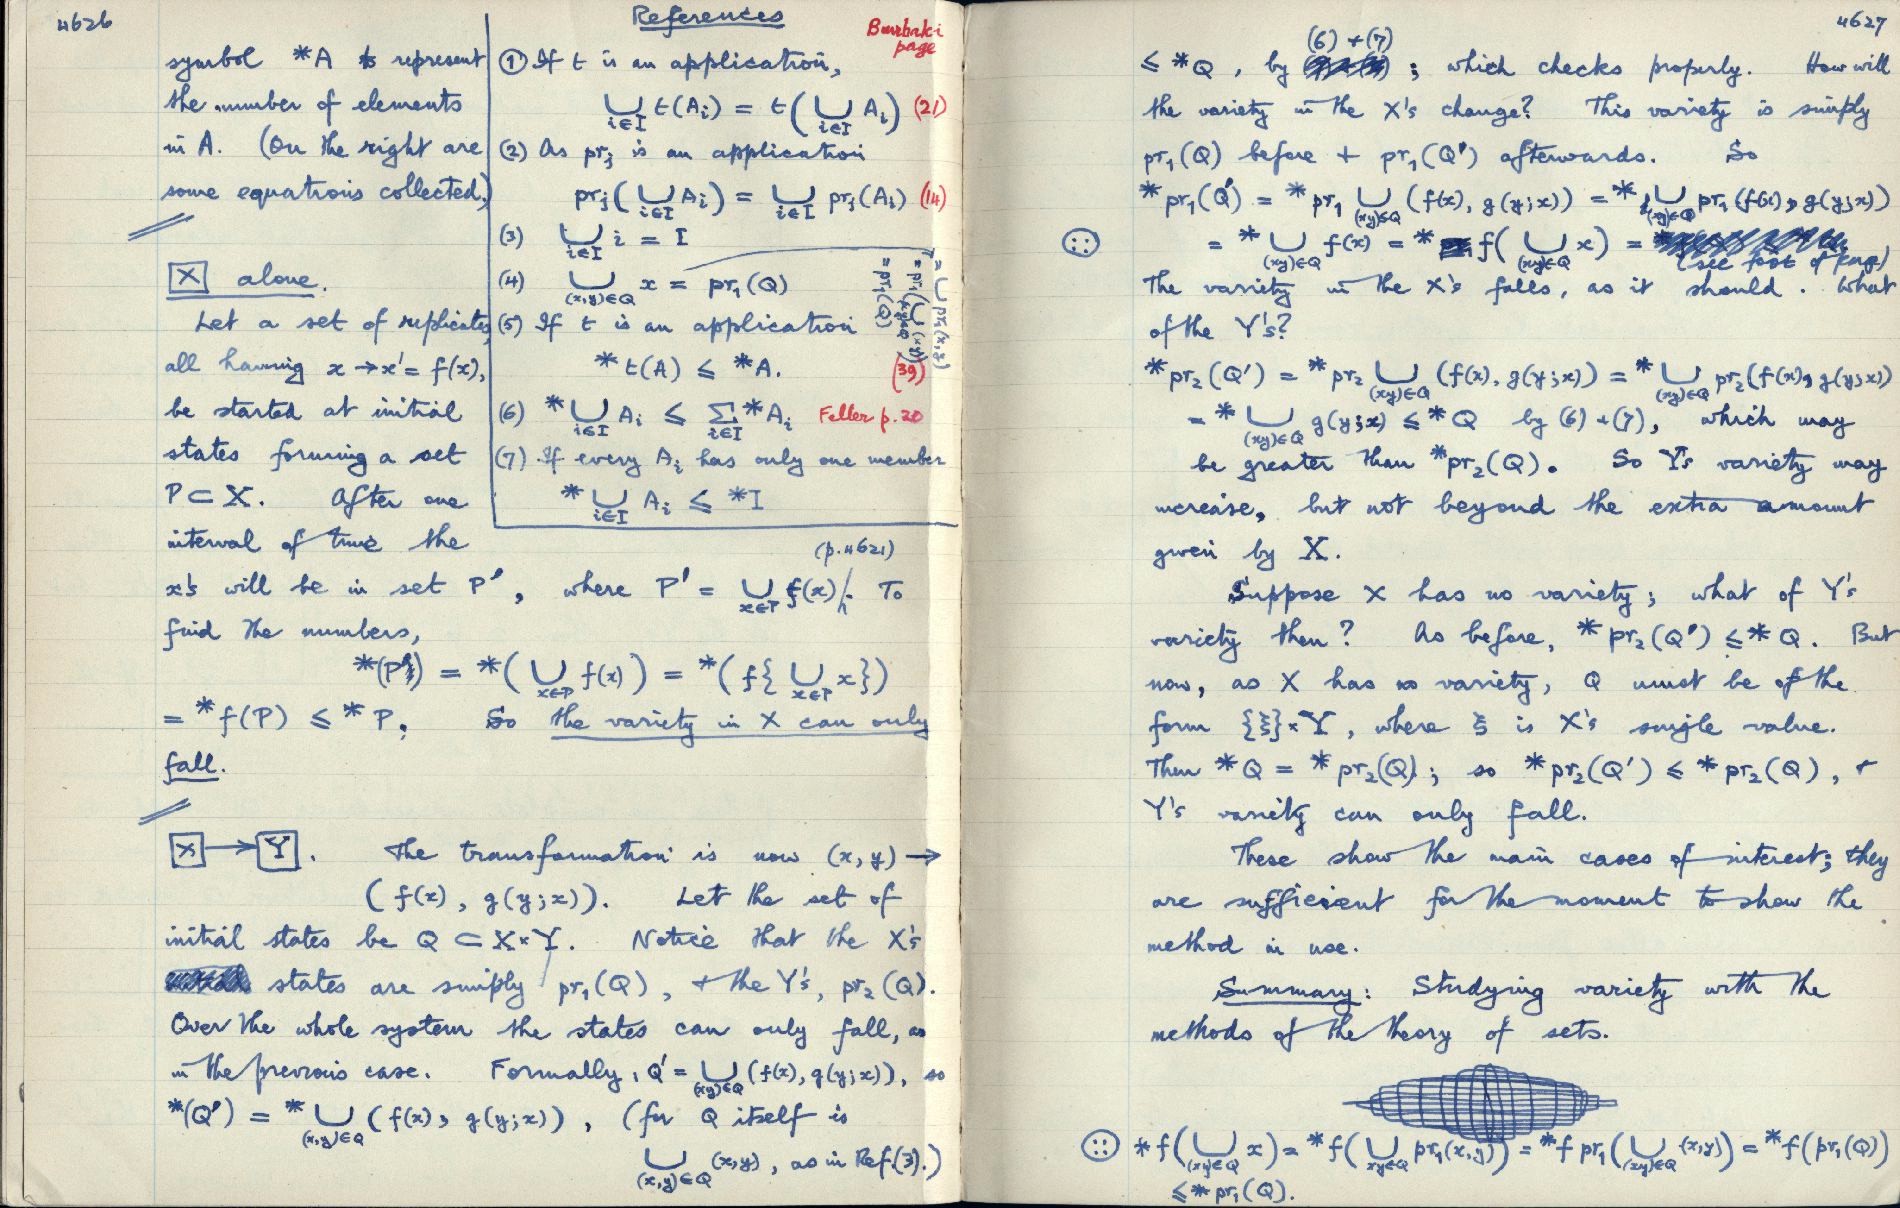 4626
symbol *A to represent
the number of elements
in A. (On the right are
some equations collected.)
References
Bourbaki
page
(1) If t is an application,
⋃ t(Aᵢ) = t(⋃ Aᵢ) (21)
i∈I i∈I
(2) As prⱼ is an application
prⱼ(⋃ Aᵢ) = ⋃ prⱼ(Aᵢ) (14)
i∈I i∈I
(3) ⋃ i = I
i∈I
(4) ⋃ x = pr₁(Q)
(x,y)∈Q
= ⋃ pr₁(x,y)
= pr₁(⋃ (x,y))
(x,y)∈Q
= pr₁(Q)
(5) If t is an application
*t(A) ≤ *A. (39)
(6) *⋃ Aᵢ ≤ ∑ *Aᵢ Feller p.20
i∈I i∈I
(7) If every Aᵢ has only one member
*⋃ Aᵢ ≤ *I
i∈I
X alone.
Let a set of replicates,
all having x → x' = f(x),
be started at initial
states forming a set
P ⊂ X. After one
interval of time the
(p.4621)
x's will be in set P', where P' = ⋃ f(x). To
x∈P
find the numbers,
*(P') = *(⋃ f(x)) = *(f{⋃ x})
x∈P x∈P
= *f(P) ≤ *P. So the variety in X can only
fall.
X → Y. The transformation is now (x,y) →
(f(x), g(y;x)). Let the set of
initial states be Q ⊂ X×Y. Notice that the X's
states are simply pr₁(Q), + the Y's, pr₂(Q).
Over the whole system the states can only fall, as
in the previous case. Formally, Q' = ⋃ (f(x), g(y;x)), so
(xy)∈Q
*(Q') = *⋃ (f(x), g(y;x)), (for Q itself is
(x,y)∈Q
⋃ (x,y), as in Ref.(3).)
(x,y)∈Q
4627
(6) + (7)
≤ *Q, by ; which checks properly. How will
the variety in the X's change? This variety is simply
pr₁(Q) before + pr₁(Q') afterwards. So
*pr₁(Q') = *pr₁ ⋃ (f(x), g(y;x)) = *⋃ pr₁(f(x), g(y;x))
(xy)∈Q (xy)∈Q
= *⋃ f(x) = *f(⋃ x) =
(xy)∈Q (xy)∈Q
(see foot of page)
The variety in the X's falls, as it should. What
of the Y's?
*pr₂(Q') = *pr₂ ⋃ (f(x), g(y;x)) = *⋃ pr₂(f(x), g(y;x))
(xy)∈Q (xy)∈Q
= *⋃ g(y;x) ≤ *Q by (6) + (7), which may
(xy)∈Q
be greater than *pr₂(Q). So Y's variety may
increase, but not beyond the extra amount
given by X.
Suppose X has no variety; what of Y's
variety then? As before, *pr₂(Q') ≤ *Q. But
now, as X has no variety, Q must be of the
form {ξ}×Y, where ξ is X's single value.
Then *Q = *pr₂(Q); so *pr₂(Q') ≤ *pr₂(Q), +
Y's variety can only fall.
These show the main cases of interest; they
are sufficient for the moment to show the
method in use.
Summary: Studying variety with the
methods of the theory of sets.
*f(⋃ x) = *f(⋃ pr₁(x,y)) = *f pr₁(⋃ (x,y)) = *f(pr₁(Q))
(xy)∈Q xy∈Q (xy)∈Q
≤ *pr₁(Q).